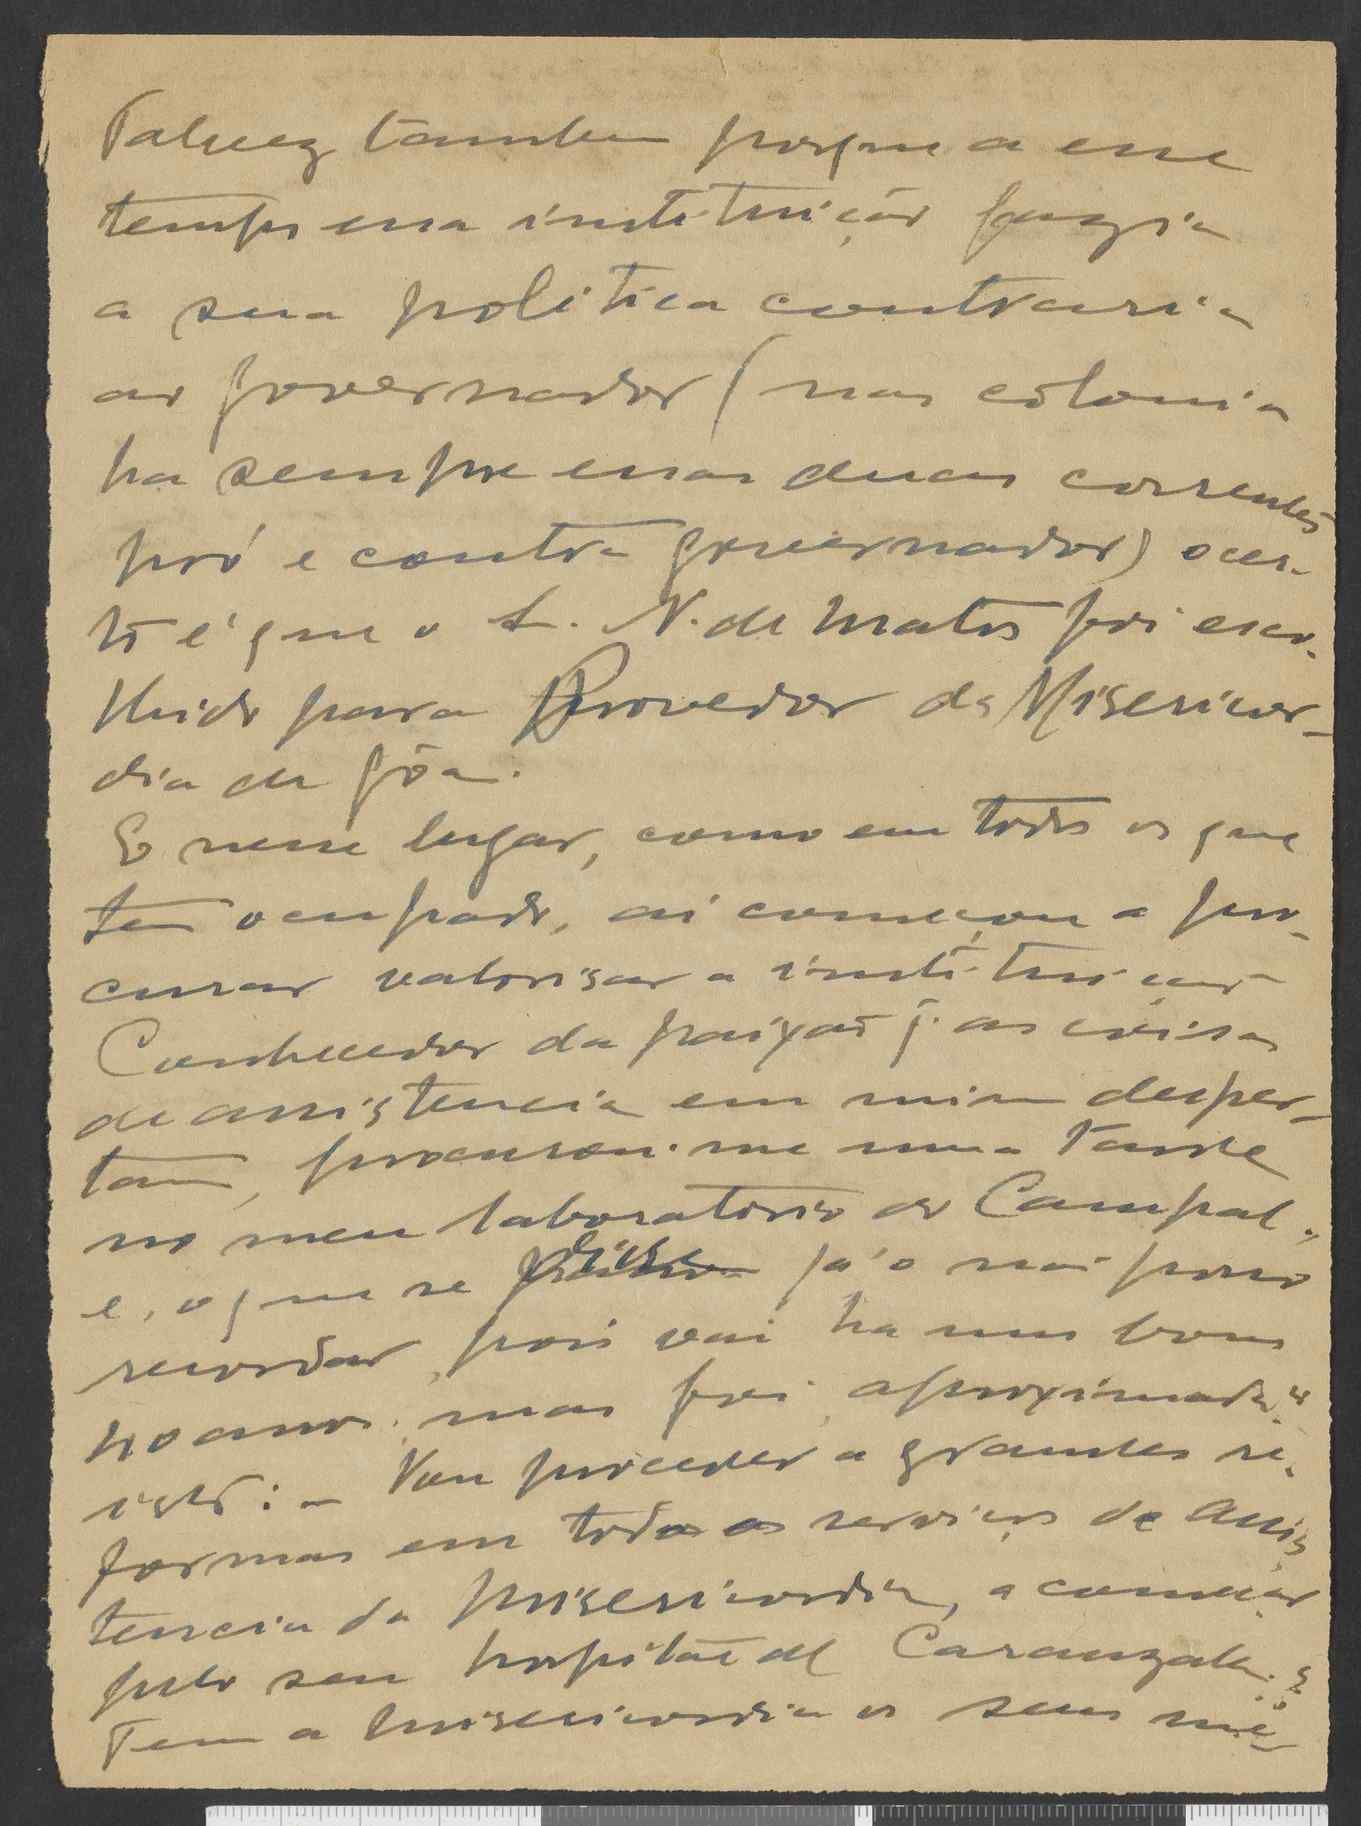 Talvez tambem porque a esse
tempo essa instituição fazia
a sua politica contraria
ao governador (nas colonia
ha sempre essas duas correntes
pró e contra governador) o cer-
to é que o L. N. de Matos foi esco-
lhido para Provedor da Misericor-
dia de Gôa.
E nesse lugar, como em todos os que
tem ocupado, aí começou a pro-
curar valorisar a instituição
Conhecedor da paixão q. as coisas
de assistencia em mim desper-
tam, procurou-me uma tarde
no meu laboratorio do Campal,
e, o que se disse já o não posso
recordar, pois vai ha uns bons
anos, mas foi, aproximada.te
isto: - Vou proceder a grandes re-
formas em todos os serviços de assis
tencia da Misericordia, a começar
pelo seu hospital de
Tem a Misericordia os seus mé-